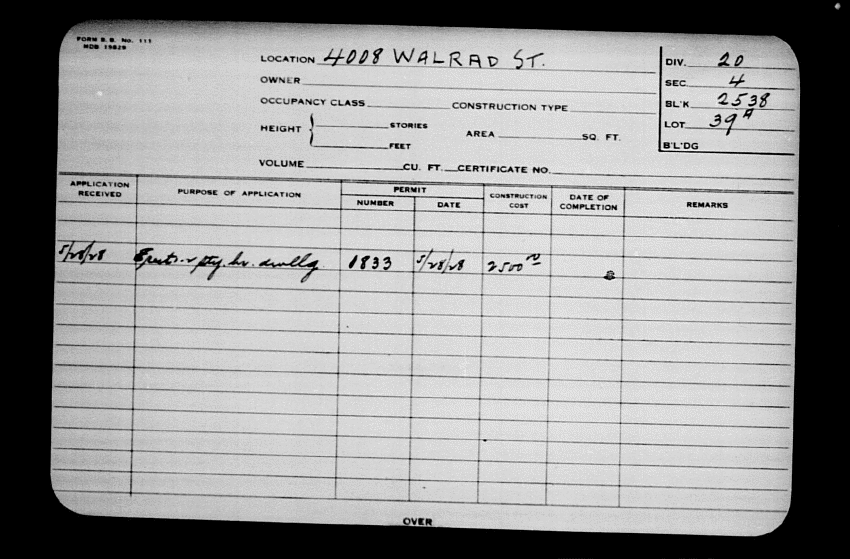 FORM B.B. No. 111
MDB 15829
LOCATION 4008 WALRAD ST.
OWNER
OCCUPANCY CLASS CONSTRUCTION TYPE
HEIGHT { STORIES
FEET
AREA SQ. FT.
VOLUME CU. FT. CERTIFICATE NO.
DIV. 20
SEC. 4
BL'K 2538
LOT 39A
B'L'DG
APPLICATION RECEIVED PURPOSE OF APPLICATION PERMIT CONSTRUCTION COST DATE OF COMPLETION REMARKS
NUMBER DATE
5/28/28 dwllg. 1833 5/28/28 2500.00
OVER